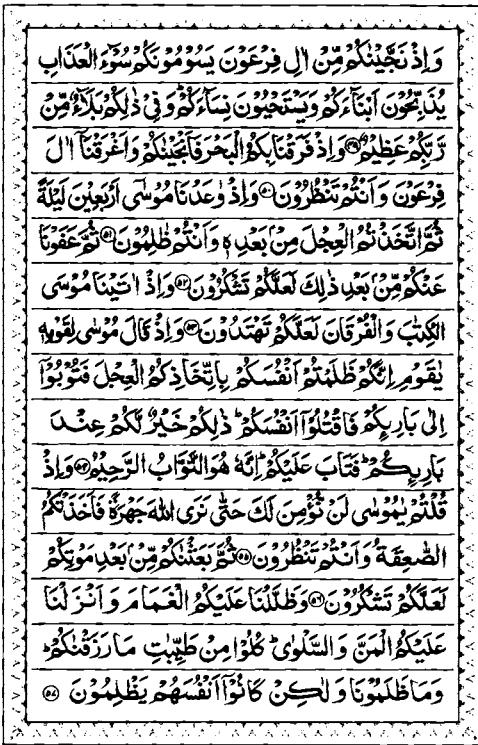 وَاِذْ نَجَّيْنٰكُمْ مِّنْ اٰلِ فِرْعَوْنَ يَسُوْمُوْنَكُمْ سُوْٓءَ الْعَذَابِ
يُذَبِّحُوْنَ اَبْنَآءَكُمْ وَيَسْتَحْيُوْنَ نِسَآءَكُمْ وَفِيْ ذٰلِكُمْ بَلَآءٌ مِّنْ
رَّبِّكُمْ عَظِيْمٌ ﴿۴۹﴾ وَاِذْ فَرَقْنَا بِكُمُ الْبَحْرَ فَاَنْجَيْنٰكُمْ وَاَغْرَقْنَآ اٰلَ
فِرْعَوْنَ وَاَنْتُمْ تَنْظُرُوْنَ ﴿۵۰﴾ وَاِذْ وٰعَدْنَا مُوْسٰٓى اَرْبَعِيْنَ لَيْلَةً
ثُمَّ اتَّخَذْتُمُ الْعِجْلَ مِنْۢ بَعْدِهٖ وَاَنْتُمْ ظٰلِمُوْنَ ﴿۵۱﴾ ثُمَّ عَفَوْنَا
عَنْكُمْ مِّنْۢ بَعْدِ ذٰلِكَ لَعَلَّكُمْ تَشْكُرُوْنَ ﴿۵۲﴾ وَاِذْ اٰتَيْنَا مُوْسَى
الْكِتٰبَ وَالْفُرْقَانَ لَعَلَّكُمْ تَهْتَدُوْنَ ﴿۵۳﴾ وَاِذْ قَالَ مُوْسٰى لِقَوْمِهٖ
يٰقَوْمِ اِنَّكُمْ ظَلَمْتُمْ اَنْفُسَكُمْ بِاتِّخَاذِكُمُ الْعِجْلَ فَتُوْبُوْٓا
اِلٰى بَارِئِكُمْ فَاقْتُلُوْٓا اَنْفُسَكُمْ ؕ ذٰلِكُمْ خَيْرٌ لَّكُمْ عِنْدَ
بَارِئِكُمْ ؕ فَتَابَ عَلَيْكُمْ ؕ اِنَّهٗ هُوَ التَّوَّابُ الرَّحِيْمُ ﴿۵۴﴾ وَاِذْ
قُلْتُمْ يٰمُوْسٰى لَنْ نُّؤْمِنَ لَكَ حَتّٰى نَرَى اللّٰهَ جَهْرَةً فَاَخَذَتْكُمُ
الصّٰعِقَةُ وَاَنْتُمْ تَنْظُرُوْنَ ﴿۵۵﴾ ثُمَّ بَعَثْنٰكُمْ مِّنْۢ بَعْدِ مَوْتِكُمْ
لَعَلَّكُمْ تَشْكُرُوْنَ ﴿۵۶﴾ وَظَلَّلْنَا عَلَيْكُمُ الْغَمَامَ وَاَنْزَلْنَا
عَلَيْكُمُ الْمَنَّ وَالسَّلْوٰى ؕ كُلُوْا مِنْ طَيِّبٰتِ مَا رَزَقْنٰكُمْ ؕ
وَمَا ظَلَمُوْنَا وَلٰكِنْ كَانُوْٓا اَنْفُسَهُمْ يَظْلِمُوْنَ ﴿۵۷﴾